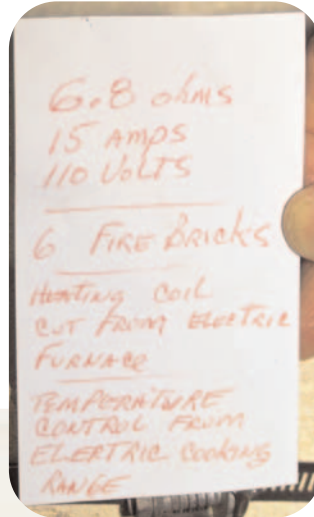 6.8 ohms
15 AMPS
110 VOLTS
6 FIRE BRICKS
HEATING COIL
CUT FROM ELECTRIC
FURNACE
TEMPERATURE
CONTROL FROM
ELERTRIC COOKING
RANGE